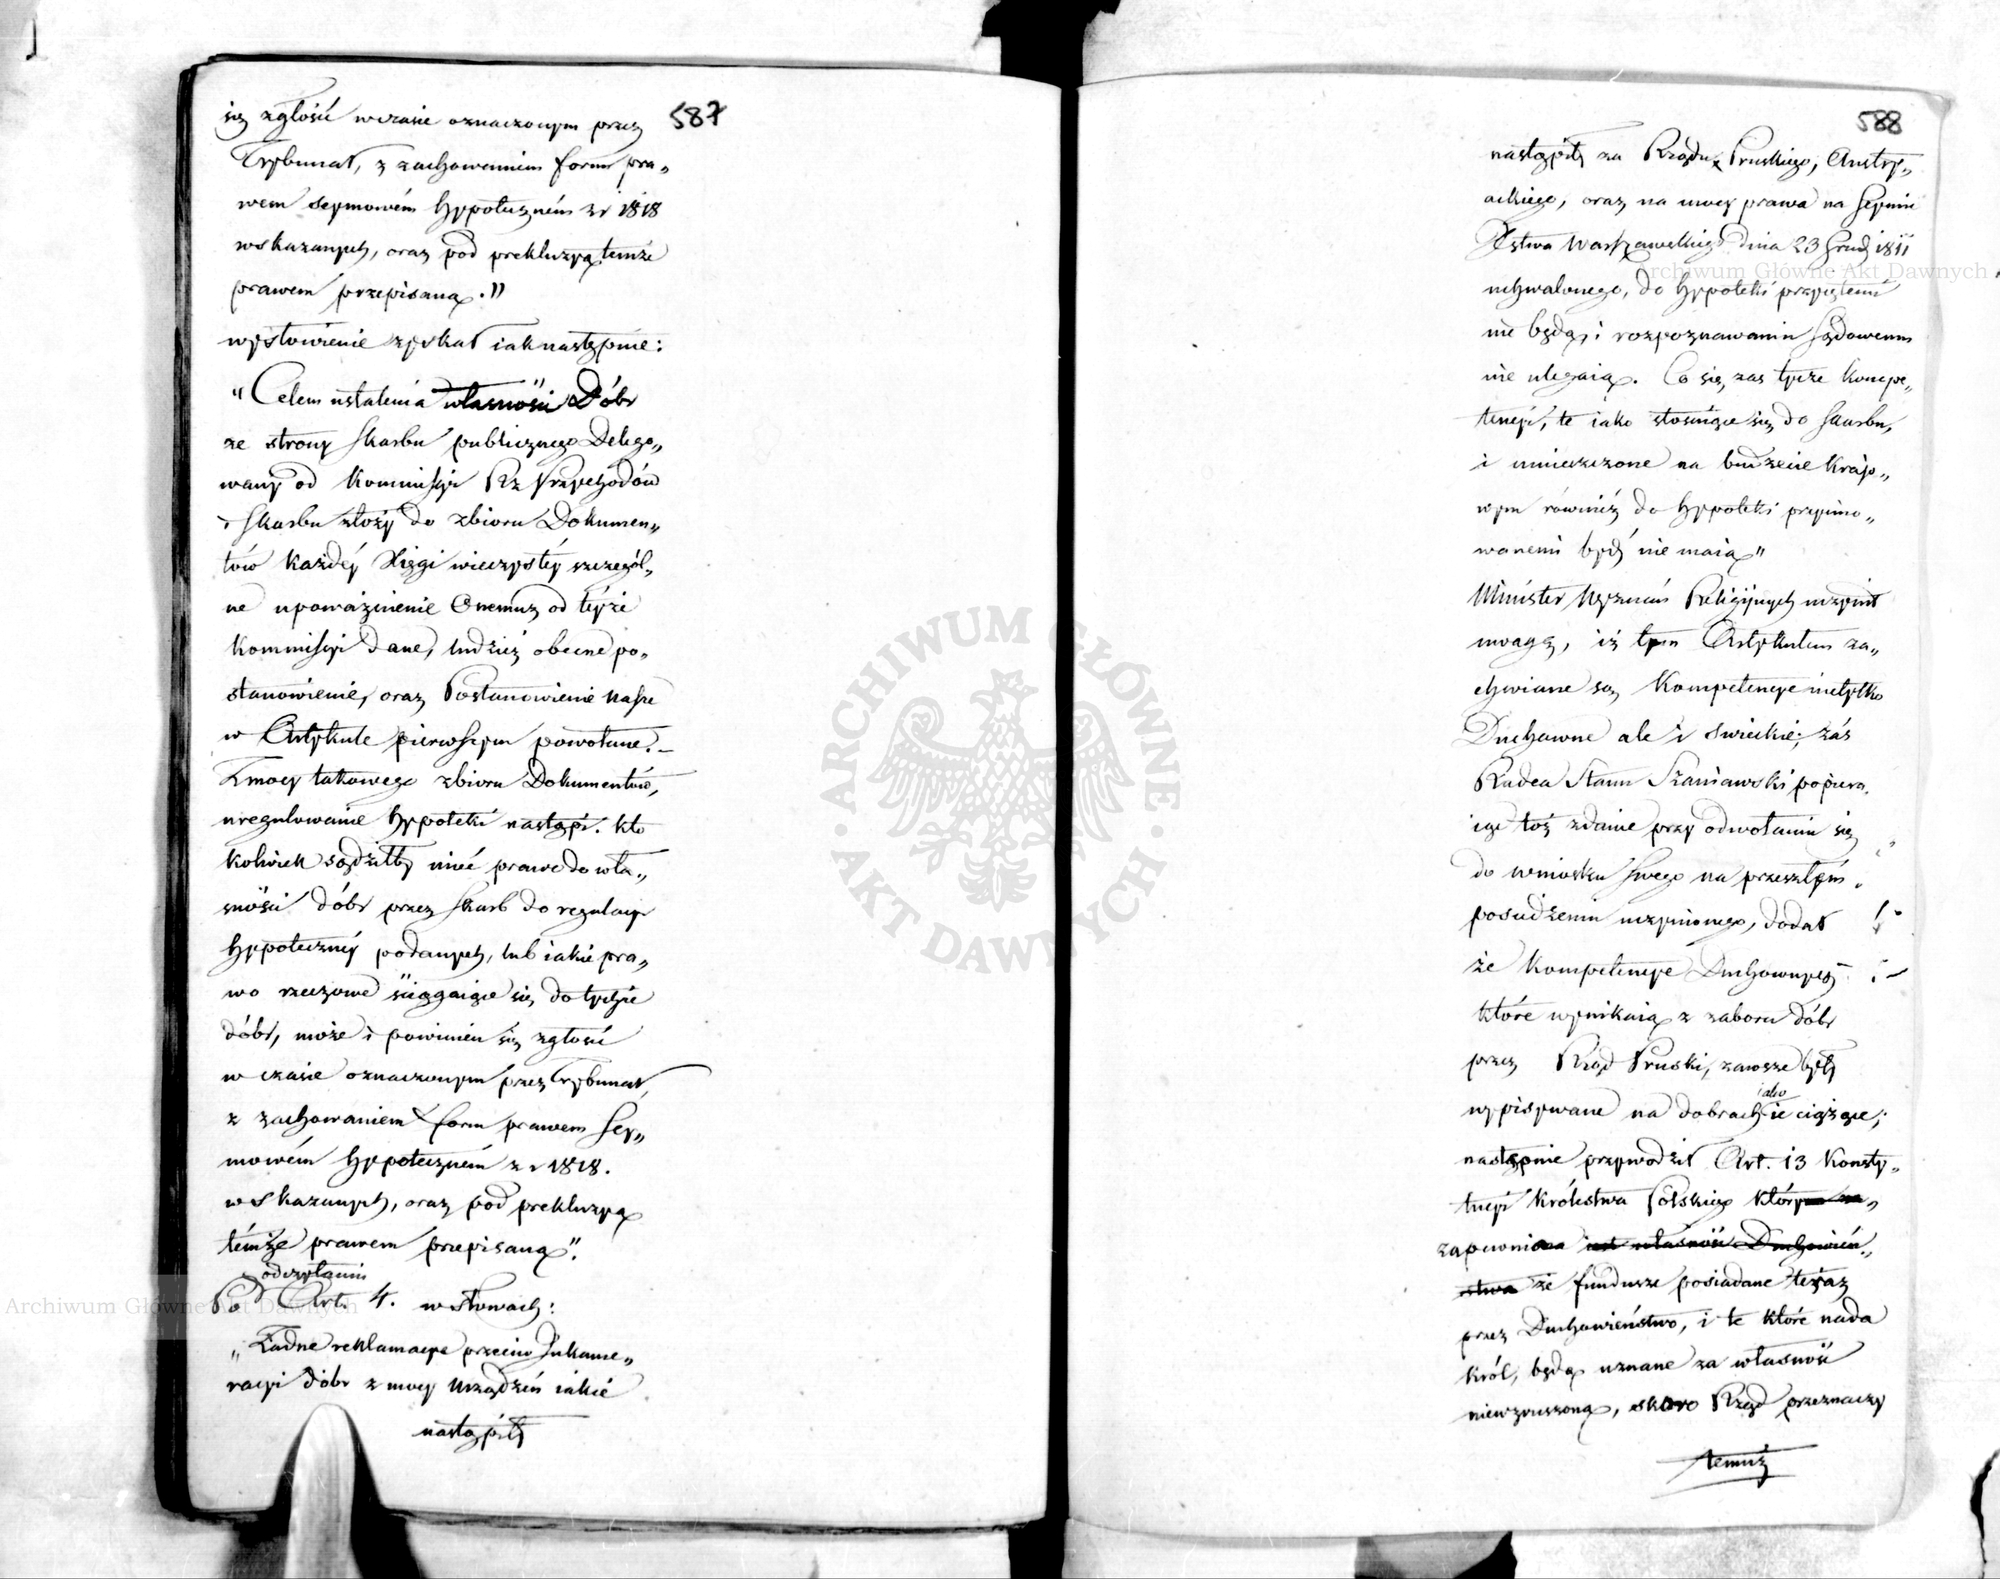 587
się zgłosić w czasie oznaczonym przez
Trybunał, z zachowaniem form pra„
wem seymowém hypoteczném z r 1818
wskazanych, oraz pod prekluzyą temże
prawem przepisaną."
wysłowienie zyskał iak następuie:
"Celem ustalenia własności Dóbr
ze strony skarbu publicznego Delego„
wany od Kommissyi Rz Przychodów
i skarbu złoży do zbioru Dokumen„
tów każdéy Xięgi wieczystéy szczegól„
ne upoważnienie Onemuz od téyże
Kommissyi dane, tudzież obecne po„
stanowienie, oraz Postanowienie nasze
w Artykule pierwszym powołane. –
Z mocy takowego zbioru Dokumentów,
uregulowanie hypoteki nastąpi. kto
kolwiek sądziłby mieć prawo do wła„
sności dóbr przez skarb do regulacyi
hypotecznéy podanych, lub iakie pra„
wo rzeczowe ściągaiące się do tychże
dóbr, może i powinien się zgłosić
w czasie oznaczonym przez Trybunał,
z zachowaniem form prawem Sey„
mowém hypoteczném z r 1818.
wskazanych, oraz pod prekluzyą
témże prawem przepisaną".
odczytaniu
Po Art. 4. w słowach:
„Żadne reklamacye przeciw Inkame„
racyi dóbr z mocy urządzeń iakie
nastąpiły
588
nastąpiły za Rządu Pruskiego, Austry„
ackiego, oraz na mocy prawa na Seymie
Xstwa Warszawskiego dnia 23 Grud 1811
uchwalonego, do hypoteki przyiętemi
nie będą, i rozpoznawaniu sądowemu
nie ulegaią. Co się zas tycze kompe„
tencyi, te iako stosuiące się do skarbu,
i umieszczone na budżecie krajo„
wym równiéż do hypoteki przyimo„
wanemi bydź nie maią"
Minister Wyznań Religiynych uczynił
uwagę, iż tym Artykułem za„
chwiane są Kompetencye nietylko
Duchowne ale i swieckie; zaś
Radca Stanu Szaniawski popiera„
iąc toż zdanie przy odwołaniu się
do wniosku swego na przeszłém
posiedzeniu uczynionego, dodał
że Kompetencye Duchownych
które wynikaią z zaboru dóbr
przez Rząd Pruski, zawsze były
iako
wypisywane na dobrach ie ciążące;
następnie przywodził Art. 13 Konsty„
tucyi Królestwa Polskiego którym na„
zapewniona iest własność Duchowień„
stwa że fundusze posiadane teraz
przez Duchowieństwo, i te które nada
król, będą uznane za własność
niewzruszoną, skoro Rząd przeznaczy
temuż
Archiwum Główne Akt Dawnych
Archiwum Główne Akt Dawnych
ARCHIWUM GŁÓWNE
AKT DAWNYCH